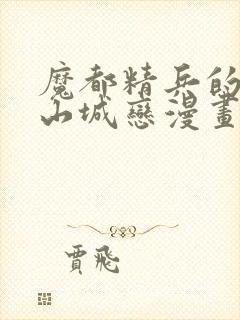 魔都精兵的
山城戀漫畫
賈飛